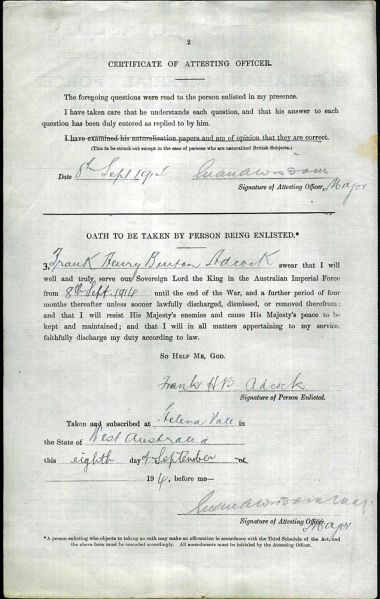 2
CERTIFICATE OF ATTESTING OFFICER.
The foregoing questions were read to the person enlisted in my presence.
I have taken care that he understands each question, and that his answer to each
question has been duly entered as replied to by him.
I have examined his naturalization papers and am of opinion that they are correct.
(This to be struck out except in the case of persons who are naturalized British Subjects.)
Date 8th Sept 1914
Major
Signature of Attesting Officer.
OATH TO BE TAKEN BY PERSON BEING ENLISTED.*
I, Frank Henry Adcock swear that I will
well and truly serve our Sovereign Lord the King in the Australian Imperial Force
from 8th Sept. 1914 until the end of the War, and a further period of four
months thereafter unless sooner lawfully discharged, dismissed, or removed therefrom;
and that I will resist His Majesty's enemies and cause His Majesty's peace to be
kept and maintained; and that I will in all matters appertaining to my service,
faithfully discharge my duty according to law.
SO HELP ME, GOD.
Frank H B Adcock
Signature of Person Enlisted.
Taken and subscribed at Helena Vale in
the State of West Australia
this eighth day of September of
1914, before me—
Signature of Attesting Officer.
Major
*A person enlisting who objects to taking an oath may make an affirmation in accordance with the Third Schedule of the Act, and
the above form must be amended accordingly. All amendments must be initialed by the Attesting Officer.